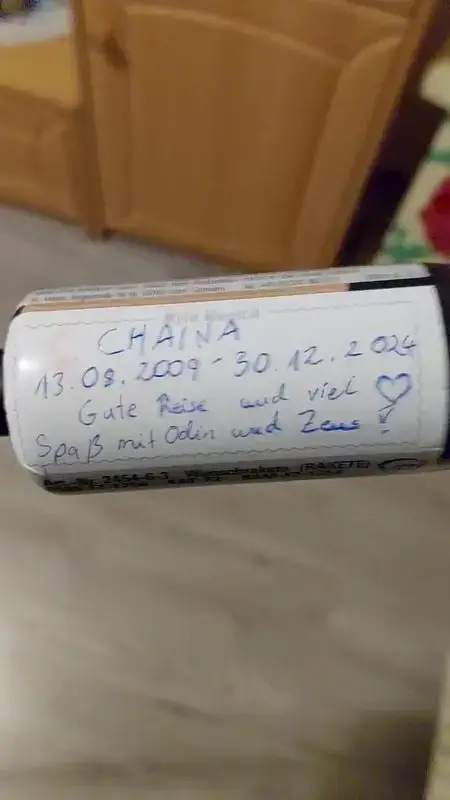 CHAINA
13.08.2009 - 30.12.2024
Gute Reise und viel
Spaß mit Odin und Zeus!
(RAKETE)